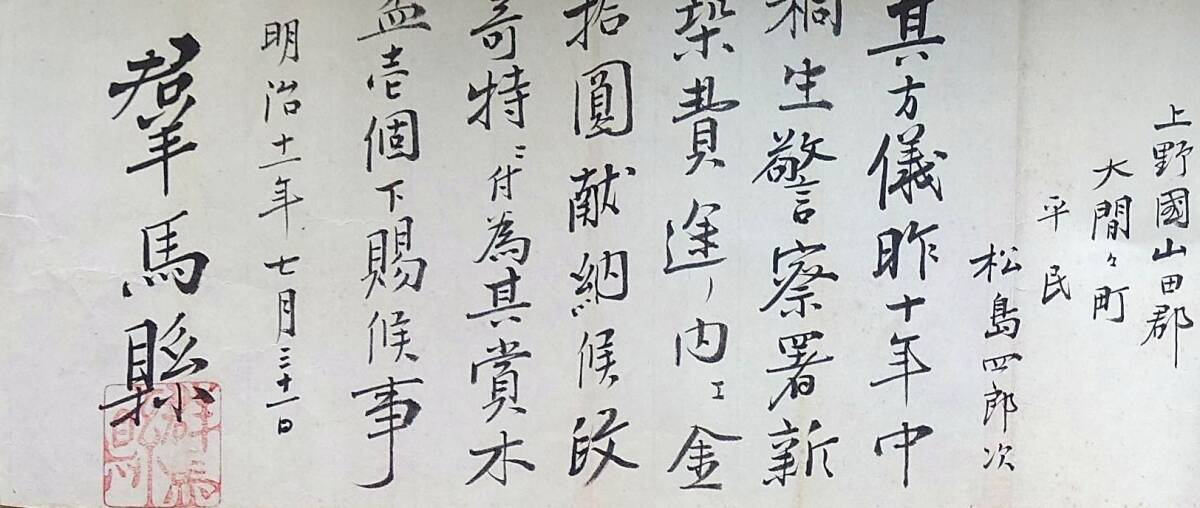 上野國山田郡
大間々町
平民
松島四郎次
其方儀昨十年中
桐生警察署新
築費途ノ内エ金
拾圓献納候段
奇特ニ付為其賞木
盃壱個下賜候事
明治十一年七月三十一日
羣馬縣